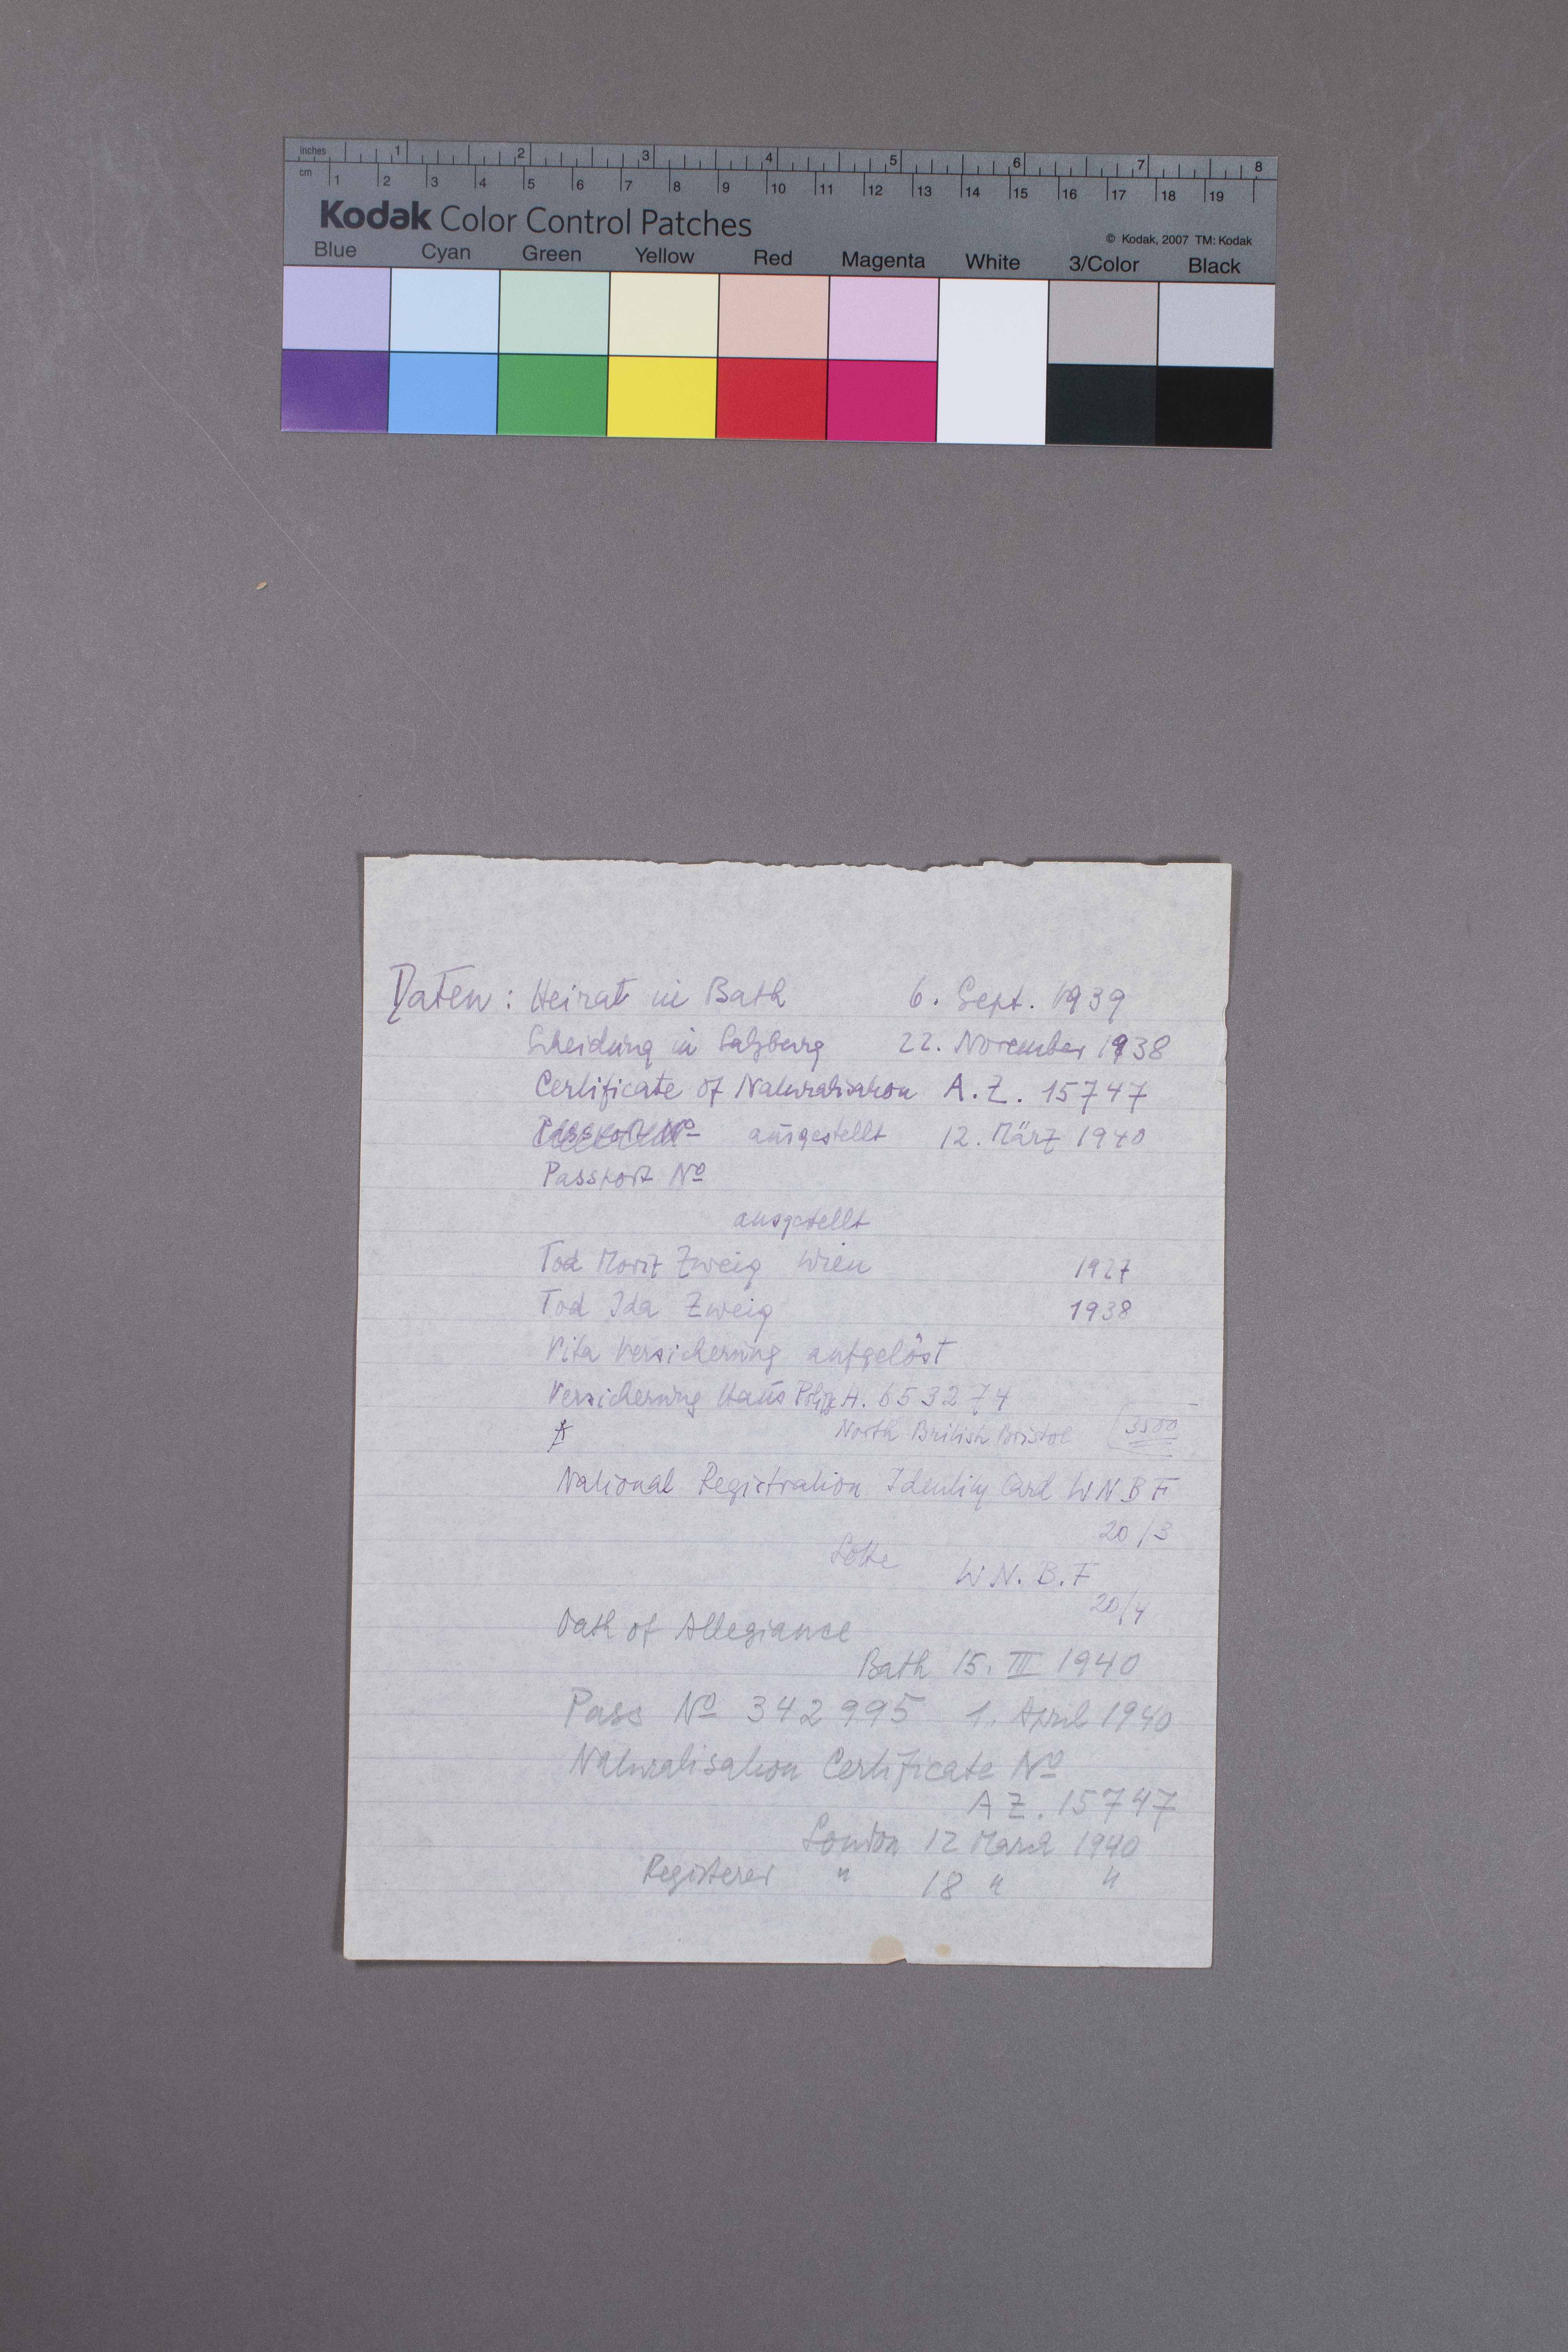 inches 1 2 3 4 5 6 7 8
cm 1 2 3 4 5 6 7 8 9 10 11 12 13 14 15 16 17 18 19
Kodak Color Control Patches
© Kodak, 2007 TM: Kodak
Blue Cyan Green Yellow Red Magenta White 3/Color Black
Daten: Heirat in Bath 6. Sept. 1939
Scheidung in Salzburg 22. November 1938
Certificate of Naturalisation A.Z. 15747
Passport No ausgestellt 12. März 1940
Passport No
ausgestellt
Tod Moriz Zweig Wien 1927
Tod Ida Zweig 1938
Vita Versicherung aufgelöst
Versicherung Haus Polizze H. 653274
North British Bristol 3500
National Registration Identity Card WNBF
20/3
Lotte W.N.B.F
20/4
Oath of Allegiance
Bath 15. III 1940
Pass No 342995 1. April 1940
Naturalisation Certificate No
AZ. 15747
London 12 March 1940
Registered " 18 " "